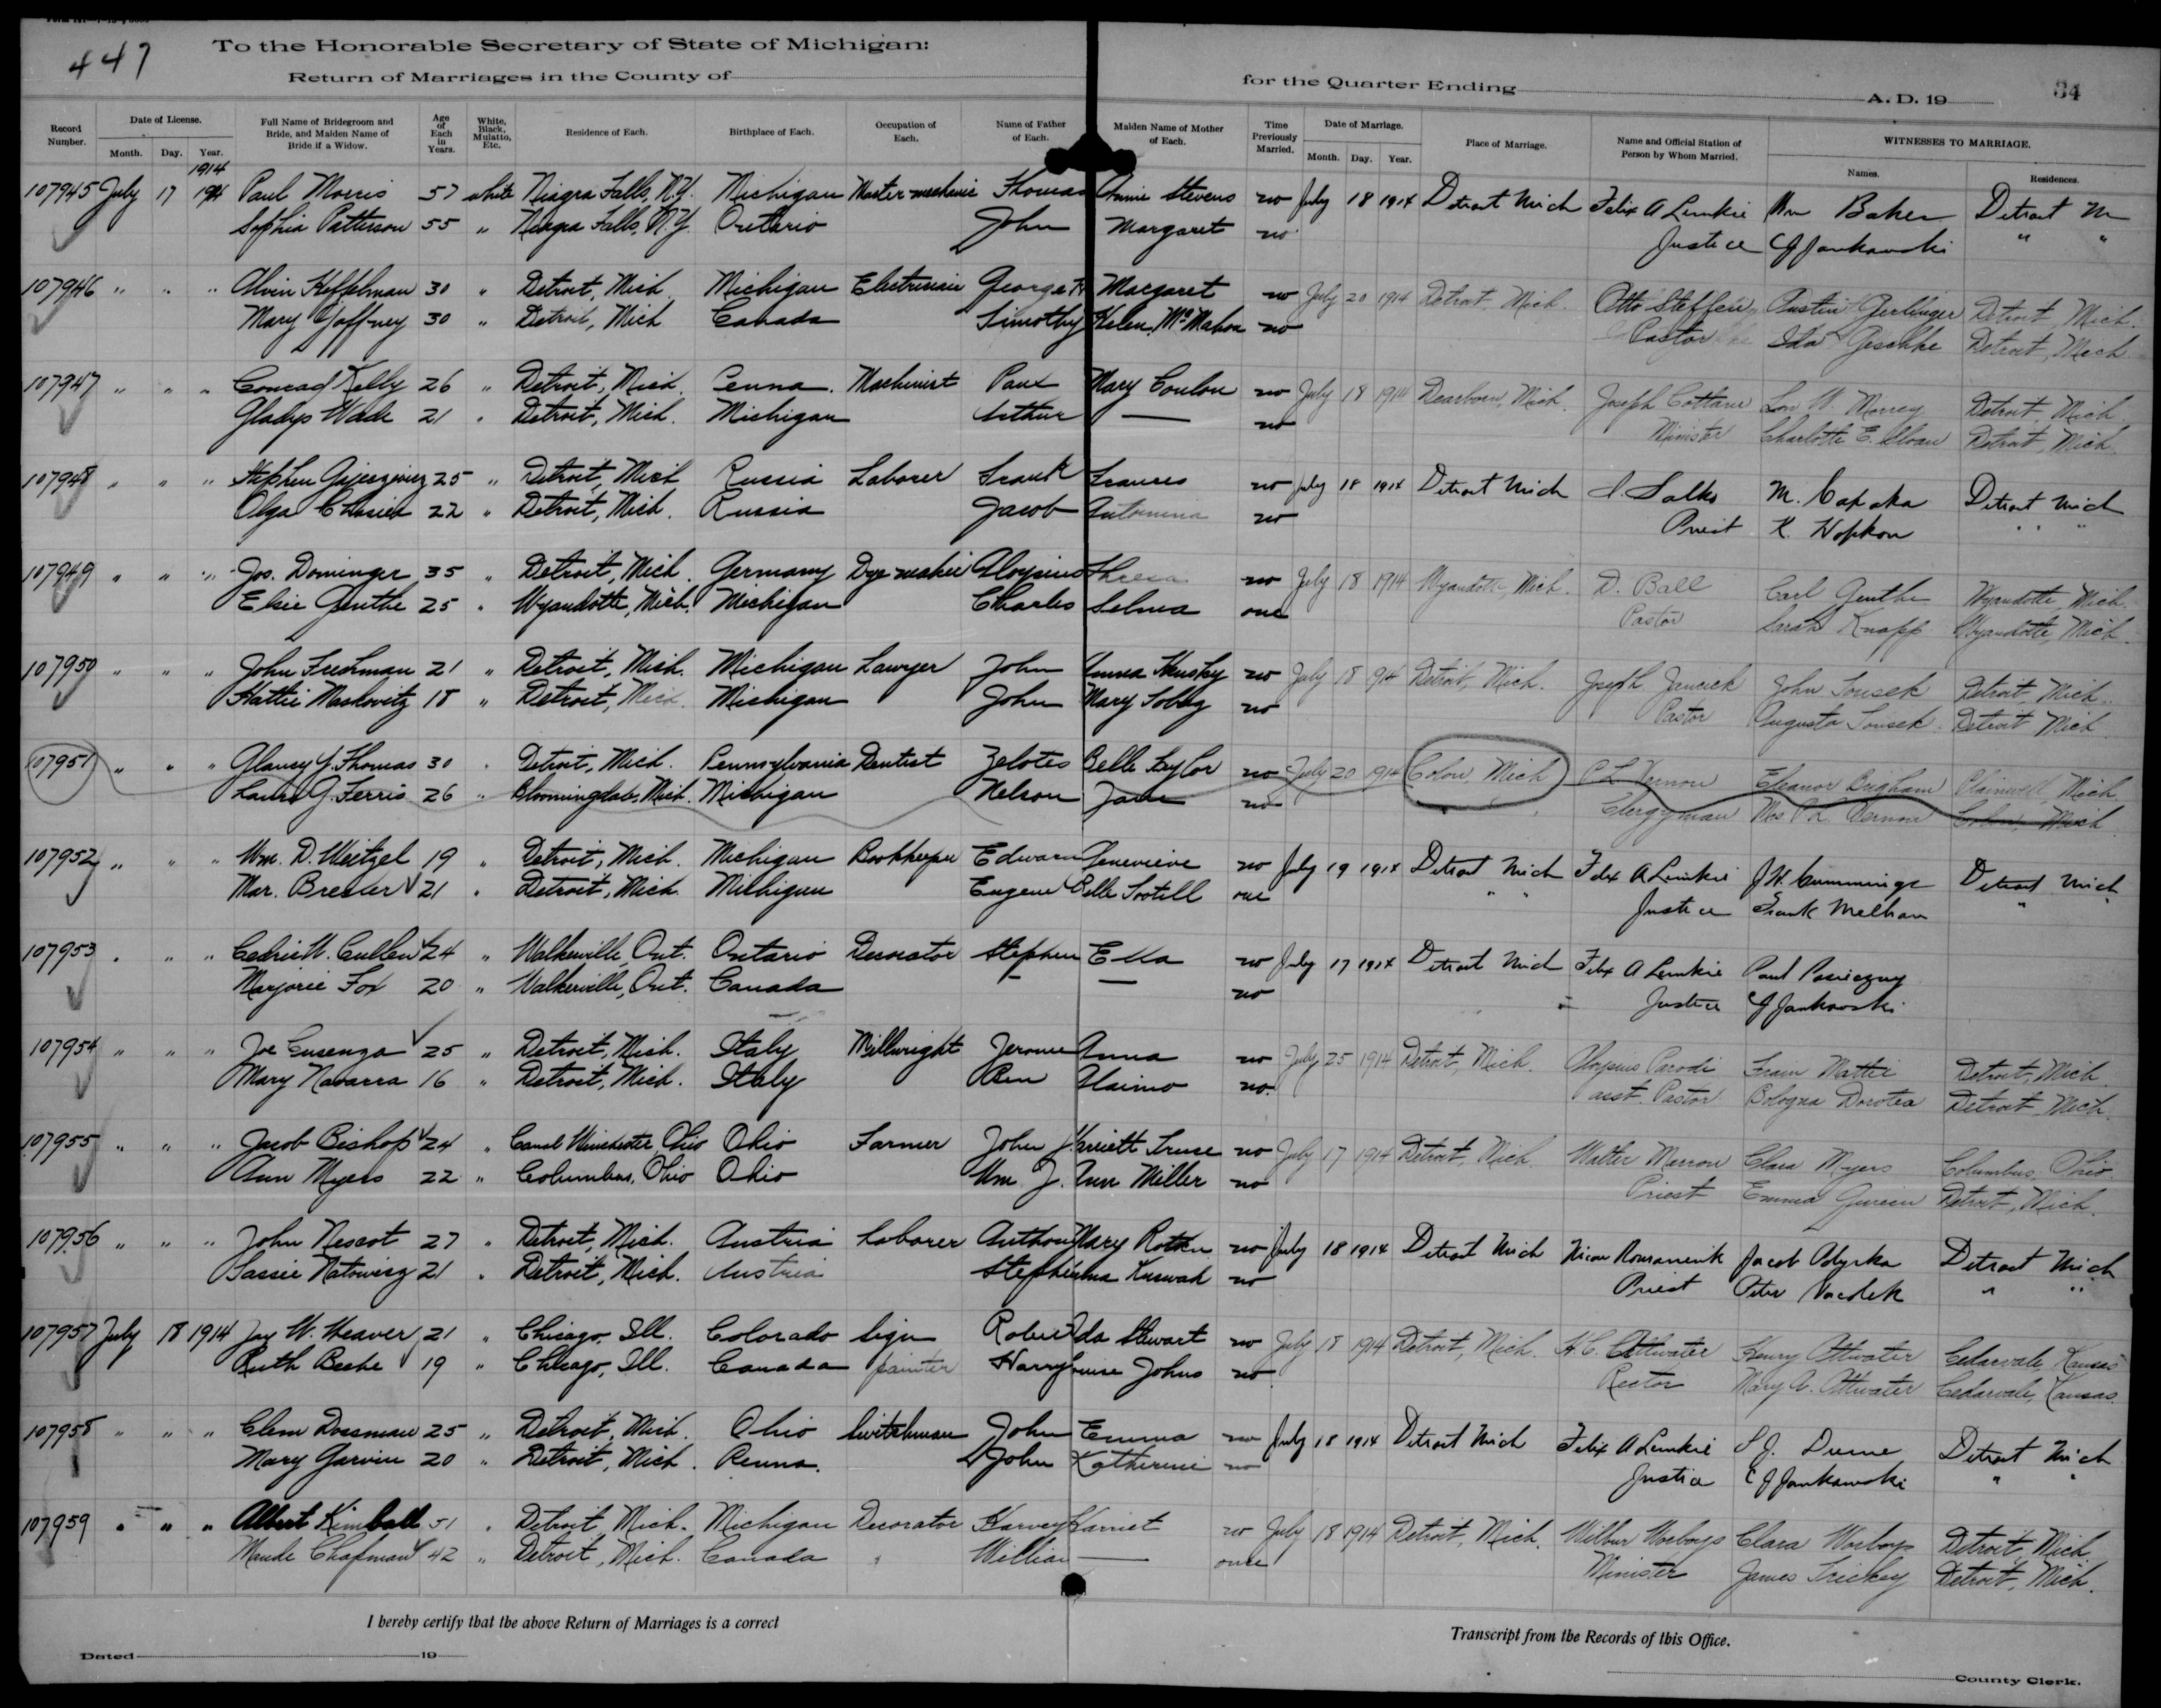 447
To the Honorable Secretary of State of Michigan:
Return of Marriages in the County of
for the Quarter Ending
A. D. 19
34
Record Number. Date of License. Month. Day. Year. Full Name of Bridegroom and Bride, and Maiden Name of Bride if a Widow. Age of Each in Years. White, Black, Mulatto, Etc. Residence of Each. Birthplace of Each. Occupation of Each. Name of Father of Each. Maiden Name of Mother of Each. Time Previously Married. Date of Marriage. Month. Day. Year. Place of Marriage. Name and Official Station of Person by Whom Married. WITNESSES TO MARRIAGE. Names. Residences.
1914
107945 July 17 1914 Paul Morris 57 white Niagra Falls, N.Y. Michigan Master mechanic Thomas Annie Stevens no July 18 1914 Detroit Mich Felix A Lemkie Wm Baker Detroit M
Sophia Patterson 55 " Niagra Falls, N.Y. Ontario John Margaret no Justice C J Jankowski " "
107946 " " " Alvin Keffelman 30 " Detroit, Mich. Michigan Electrician George Margaret no July 20 1914 Detroit, Mich. Otto Steffen Austin Gerlinger Detroit, Mich.
Mary Gaffney 30 " Detroit, Mich Canada Timothy Helen McMahon no Pastor Ida Geschke Detroit, Mich.
107947 " " " Conrad Kelly 26 " Detroit, Mich. Penna. Machinist Paul Mary Conlon no July 18 1914 Dearborn, Mich. Joseph Lon W. Morrey Detroit, Mich.
Gladys Wade 21 " Detroit, Mich. Michigan Arthur — no Minister Charlotte E. Sloan Detroit, Mich.
107948 " " " Stephen 25 " Detroit, Mich Russia Laborer Frank Frances no July 18 1914 Detroit Mich M. Capaka Detroit Mich
Olga 22 " Detroit, Mich. Russia Jacob Antonina no Priest K. Hopkon " "
107949 " " " Jos. Dominger 35 " Detroit, Mich. Germany Dye maker Aloysius Theresa no July 18 1914 Wyandotte, Mich. D. Ball Carl Genthe Wyandotte, Mich.
Elsie Genthe 25 " Wyandotte, Mich. Michigan Charles Selma one Pastor Sarah Knapp Wyandotte, Mich.
107950 " " " John Freshman 21 " Detroit, Mich. Michigan Lawyer John Anna no July 18 914 Detroit, Mich. Joseph Jancick John Sousek Detroit, Mich.
Hattie Maskovitz 18 " Detroit, Mich. Michigan John Mary no Pastor Augusta Sousek Detroit Mich
107951 " " " Glancy Y. Thomas 30 " Detroit, Mich. Pennsylvania Dentist Zelotes Belle Taylor no July 20 1914 Colon Mich C L Vernon Eleanor Brigham Plainwell, Mich
Laura J. Ferris 26 " Bloomingdale, Mich. Michigan Nelson Jane no Clergyman Mrs C L Vernon Colon, Mich.
107952 " " " Wm. D. Weitzel 19 " Detroit, Mich. Michigan Bookkeeper Edward Genevieve no July 19 1914 Detroit Mich Felix A Lemkie J. H. Cummings Detroit Mich
Mar. Bresler 21 " Detroit, Mich. Michigan Eugene Belle Sootill one " " Justice Frank "
107953 " " " Cedric W. Cullen 24 " Walkerville, Ont. Ontario Decorator Stephen Ella no July 17 1914 Detroit Mich Felix A Lemkie Paul
Marjorie Fox 20 " Walkerville, Ont. Canada — — no Justice C J Jankowski
107954 " " " Joe Cusenza 25 " Detroit, Mich. Italy Millwright Jerome Anna no July 25 1914 Detroit, Mich. Aloysius Parodi Detroit, Mich.
Mary Navarra 16 " Detroit, Mich. Italy Ben Alaimo no. asst. Pastor Bologna Dorotea Detroit, Mich.
107955 " " " Jacob Bishop 24 " Canal Winchester, Ohio Ohio Farmer John J. Harriett Truse no July 17 1914 Detroit, Mich. Walter Marron Clara Myers Columbus, Ohio.
Ann Myers 22 " Columbus, Ohio Ohio Wm. J. Ann Miller no Priest Emma Detroit, Mich.
107956 " " " John Nescot 27 " Detroit, Mich. Austria Laborer Anthony Mary no July 18 1914 Detroit Mich Jacob Detroit Mich
Natowicz 21 " Detroit, Mich. Austria Stephen no Priest Peter " "
107957 July 18 1914 Jay W. Weaver 21 " Chicago, Ill. Colorado Sign Robert Ida Stewart no July 18 1914 Detroit, Mich. H. C. Attwater Henry Attwater Cedarvale, Kansas
Ruth Beebe 19 " Chicago, Ill. Canada painter Harry Louise Johns no Rector Mary A. Attwater Cedarvale, Kansas.
107958 " " " Clem Dossman 25 " Detroit, Mich. Ohio Switchman John Emma no July 18 1914 Detroit Mich Felix A Lemkie S J. Dume Detroit Mich
Mary Garvin 20 " Detroit, Mich. Penna. John Katherine no Justice C J Jankowski " "
107959 " " " Albert Kimball 51 " Detroit, Mich. Michigan Decorator Harvey Harriet no July 18 1914 Detroit, Mich. Wilbur Worboys Clara Worboys Detroit, Mich.
Maude Chapman 42 " Detroit, Mich. Canada " William — once Minister James Trickey Detroit, Mich.
I hereby certify that the above Return of Marriages is a correct
Transcript from the Records of this Office.
Dated 19
County Clerk.